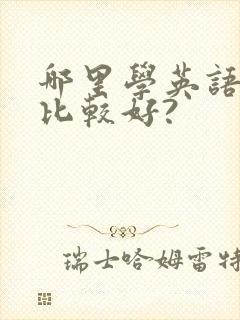 哪里學英語
比較好?
瑞士哈姆雷特